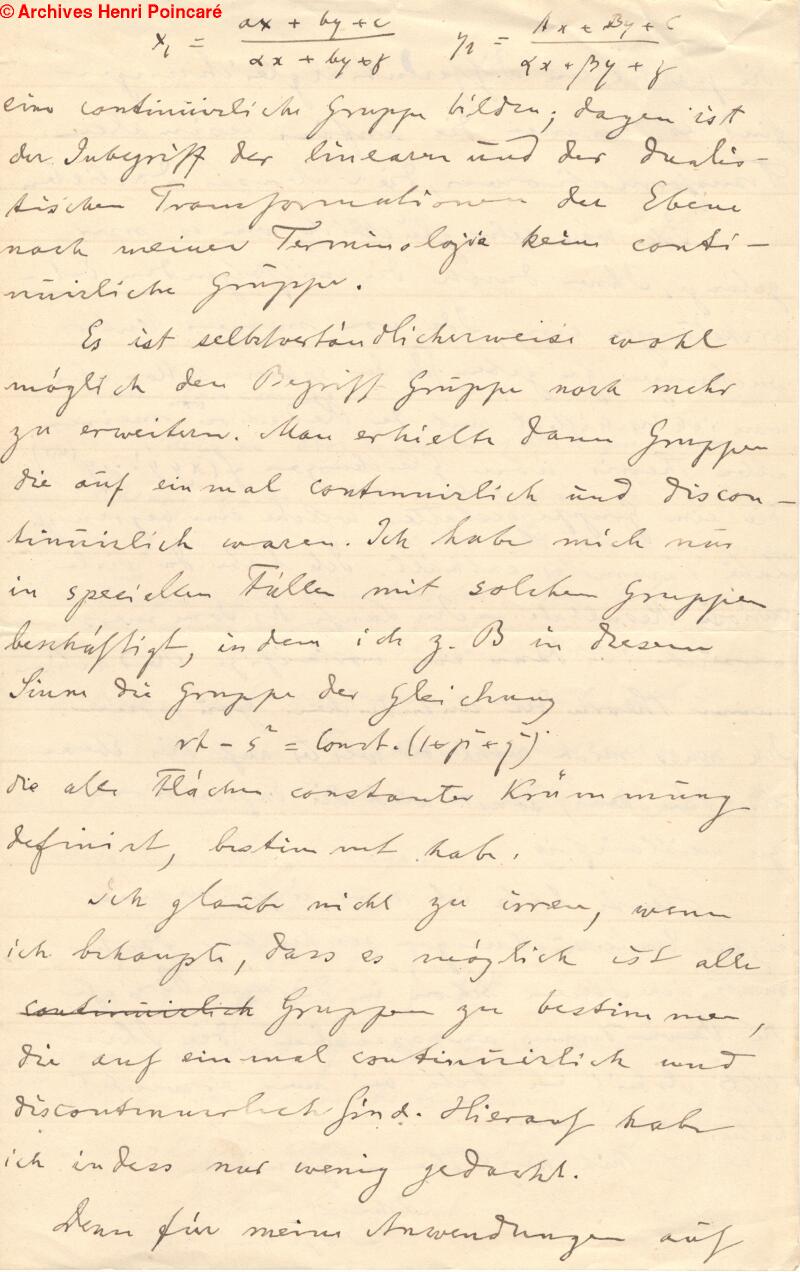 © Archives Henri Poincaré
x₁ = (ax + by + c)/(αx + by + γ)   y₁ = (Ax + By + C)/(αx + βy + γ)
eine continüirliche Gruppe bilden; dagen ist
der Inbegriff der linearen und der dualis-
tischen Transformationen der Ebene
nach meiner Terminologie keine conti-
nüirliche Gruppe.
Es ist selbstverständlicherweise wohl
möglich den Begriff Gruppe noch mehr
zu erweitern. Man erhielte dann Gruppen
die auf einmal continuirlich und discon-
tinüirlich waren. Ich habe mich nur
in speciellen Fällen mit solchen Gruppen
beschäftigt, indem ich z. B in diesem
Sinne die Gruppe der Gleichung
rt - s² = Const. (1+p²+q²)
die alle Flächen constanter Krümmung
definirt, bestimmt habe.
Ich glaube nicht zu irren, wenn
ich behaupte, dass es möglich ist alle
continüirlich Gruppen zu bestimmen,
die auf einmal continüirlich und
discontinuirlich sind. Hierauf habe
ich indess nur wenig gedacht.
Denn für meine Anwendungen auf